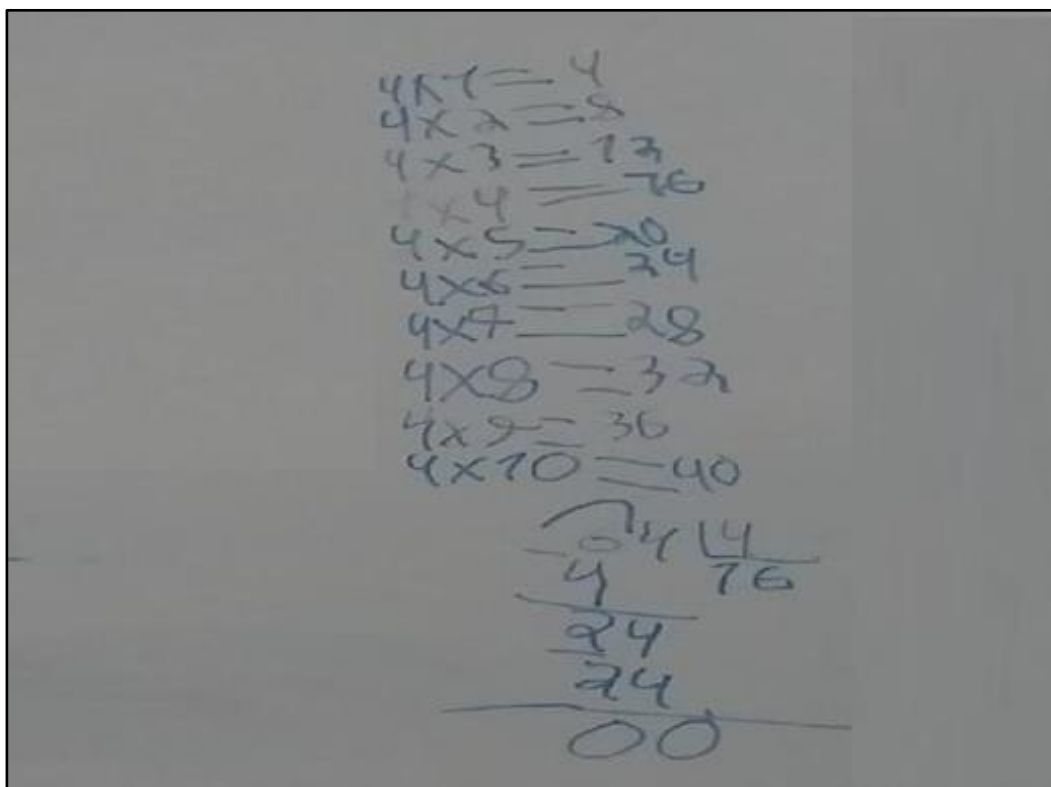 4×1=4
4×2=8
4×3=12
×4=16
4×5=20
4×6=24
4×7=28
4×8=32
4×9=36
4×10=40
4 4
4 16
24
24
00